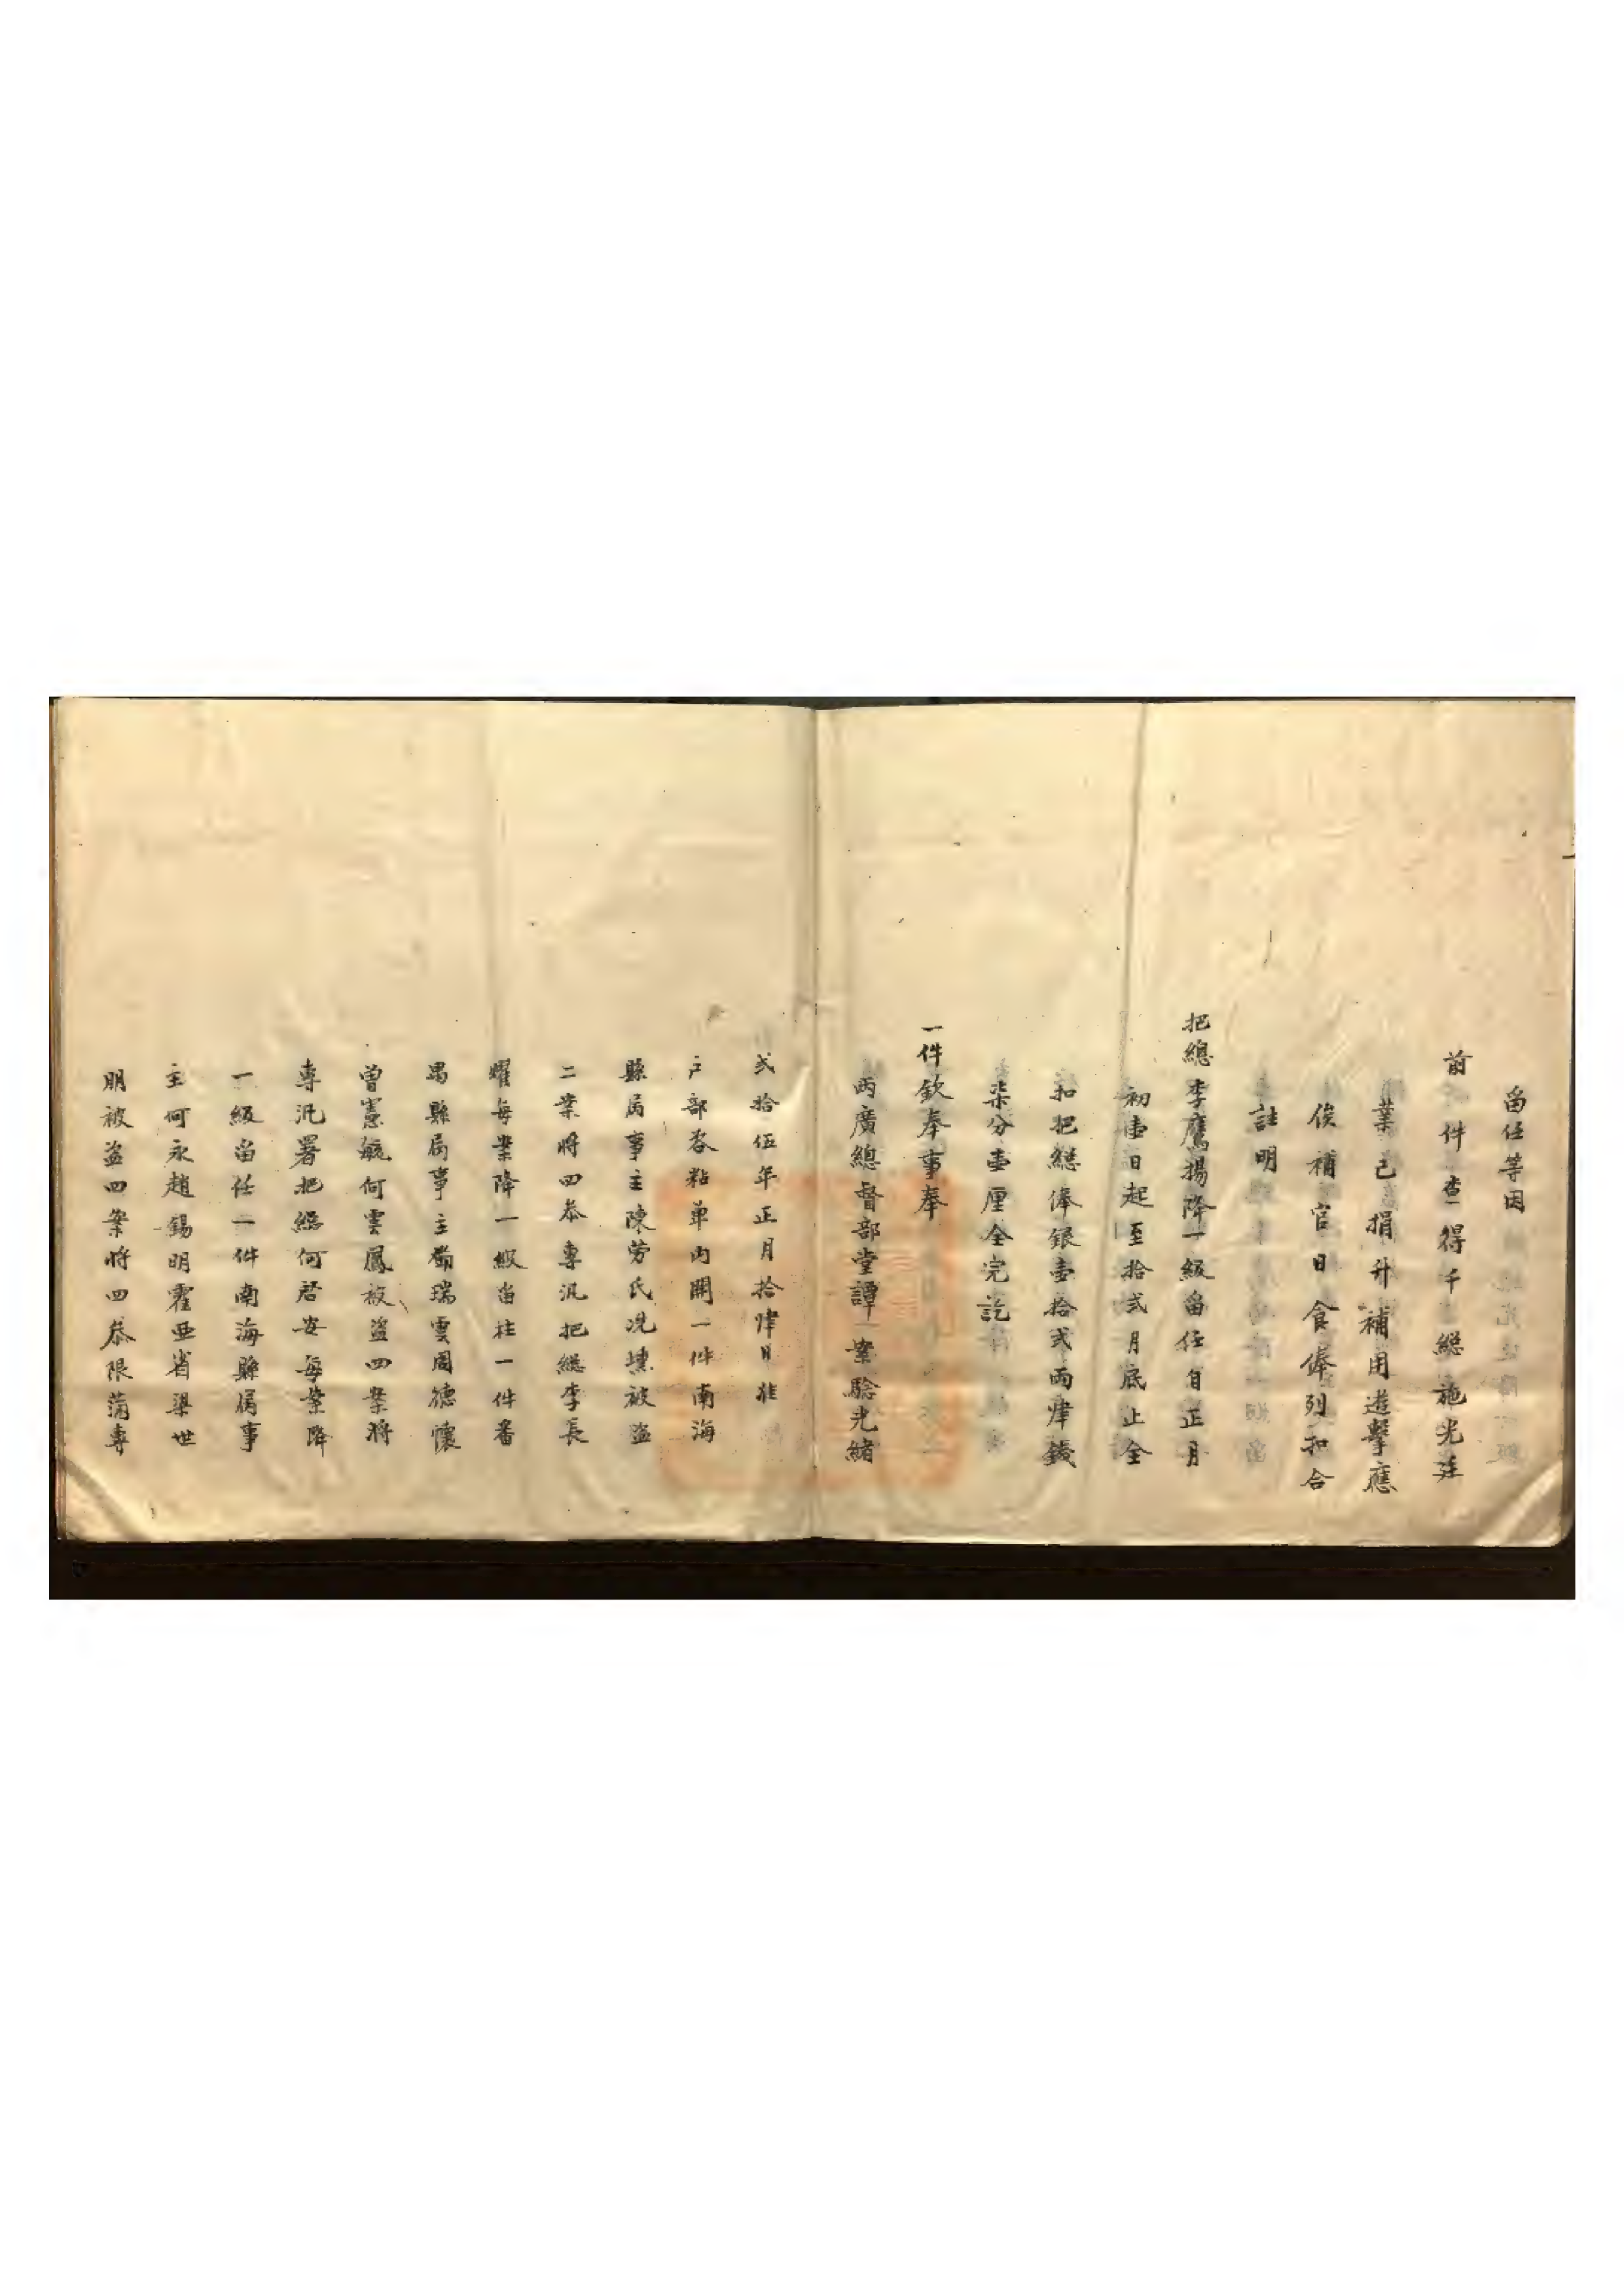 畄任等因
前件查得千縂施光廷
業已捐升補用遊擊應
俟補官日食俸列扣合
註明
把總李鷹揚降一級畄任自正月
初壹日起至拾弍月底止全
扣把縂俸銀壹拾弍兩肆錢
柒分壹厘全完訖
一件欽奉事奉
兩廣總督部堂譚 案騐光緒
弍拾伍年正月拾肆日准
户部咨粘单内開一件南海
縣属事主陳劳氏冼壎被盗
二案將四叅專汛把縂李長
耀每案降一級畄任一件番
禺縣属事主 瑞雲周德懷
曾憲毓何雲鳳被盗四案將
專汛署把縂何君安每案降
一級畄任一件南海縣属事
主何永趙錫明霍亜省梁世
明被盗四案將四叅限滿專